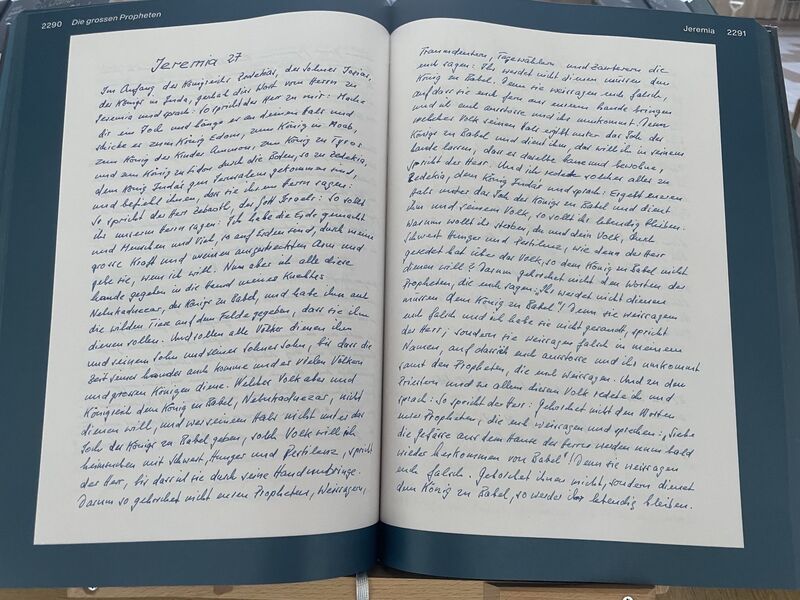 2290 Die grossen Propheten
Jeremia 27
Im Anfang des Königreichs Zedekias, des Sohnes Josias,
des Königs in Juda, geschah dies Wort vom Herrn zu
Jeremia und sprach: So spricht der Herr zu mir: Mache
dir ein Joch und hänge es an deinen Hals und
schicke es zum König Edom, zum König in Moab,
zum König der Kinder Ammon, zum König zu Tyros
und zum König zu Sidon durch die Boten, so zu Zedekia,
dem König Judas gen Jerusalem gekommen sind,
und befiehl ihnen, dass sie ihren Herrn sagen:
So spricht der Herr Zebaoth, der Gott Israels: So sollt
ihr eurem Herrn sagen: Ich habe die Erde gemacht
und Menschen und Vieh, so auf Erden sind, durch meine
grosse Kraft und meinen ausgestreckten Arm und
gebe sie, wem ich will. Nun aber ich alle diese
Lande gegeben in die Hand meines Knechtes
Nebukadnezar, des Königs zu Babel, und habe ihm auch
die wilden Tiere auf dem Felde gegeben, dass sie ihm
dienen sollen. Und sollen alle Völker dienen ihm
und seinem Sohn und seines Sohnes Sohn, bis dass die
Zeit seines Landes auch komme und er vielen Völkern
und grossen Königen diene. Welches Volk aber und
Königreich dem König zu Babel, Nebukadnezar, nicht
dienen will, und wer seinem Hals nicht unter das
Joch des Königs zu Babel geben, solch Volk will ich
heimsuchen mit Schwert, Hunger und Pestilenz, spricht
der Herr, bis dass ich sie durch seine Hand umbringe.
Darum so gehorchet nicht euren Propheten, Weissagern,
Jeremia 2291
Traumdeutern, Tagewählern und Zauberern die
euch sagen: Ihr werdet nicht dienen müssen dem
König zu Babel. Denn sie weissagen euch falsch,
auf dass sie euch fern aus eurem Lande bringen
und ich euch ausstosse und ihr umkommt. Denn
welches Volk seinen Hals ergibt unter das Joch des
Königs zu Babel und dient ihm, das will ich in seinem
Lande lassen, dass es dasselbe baue und bewohne,
spricht der Herr. Und ich redete solches alles zu
Zedekia, dem König Judas und sprach: Ergebt eueren
Hals unter das Joch des Königs zu Babel und dient
ihm und seinem Volk, so sollt ihr lebendig bleiben.
Warum wollt ihr sterben, du und dein Volk, durch
Schwert Hunger und Pestilenz, wie denn der Herr
geredet hat über das Volk, so dem König zu Babel nicht
dienen will? Darum gehorchet nicht den Worten der
Propheten, die euch sagen: „Ihr werdet nicht dienen
müssen dem König zu Babel"! Denn sie weissagen
euch falsch und ich habe sie nicht gesandt, spricht
der Herr; sondern sie weissagen falsch in meinem
Namen, auf dass ich euch ausstosse und ihr umkommt
samt den Propheten, die euch weissagen. Und zu den
Priestern und zu allem diesem Volk redete ich und
sprach: So spricht der Herr: Gehorchet nicht den Worten
eurer Propheten, die euch weissagen und sprechen: „Siehe
die Gefässe aus dem Hause des Herrn werden nun bald
wieder herkommen von Babel"! Denn sie weissagen
euch falsch. Gehorchet ihnen nicht, sondern dienet
dem König zu Babel, so werdet ihr lebendig bleiben.